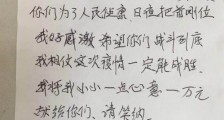 你们为了人民健康 日夜把首哪位
我好感激 希望你们战斗到底
我相伩这次疫情一定能战胜.
我将我小小一点心意一万元
献给你们、请笑纳.